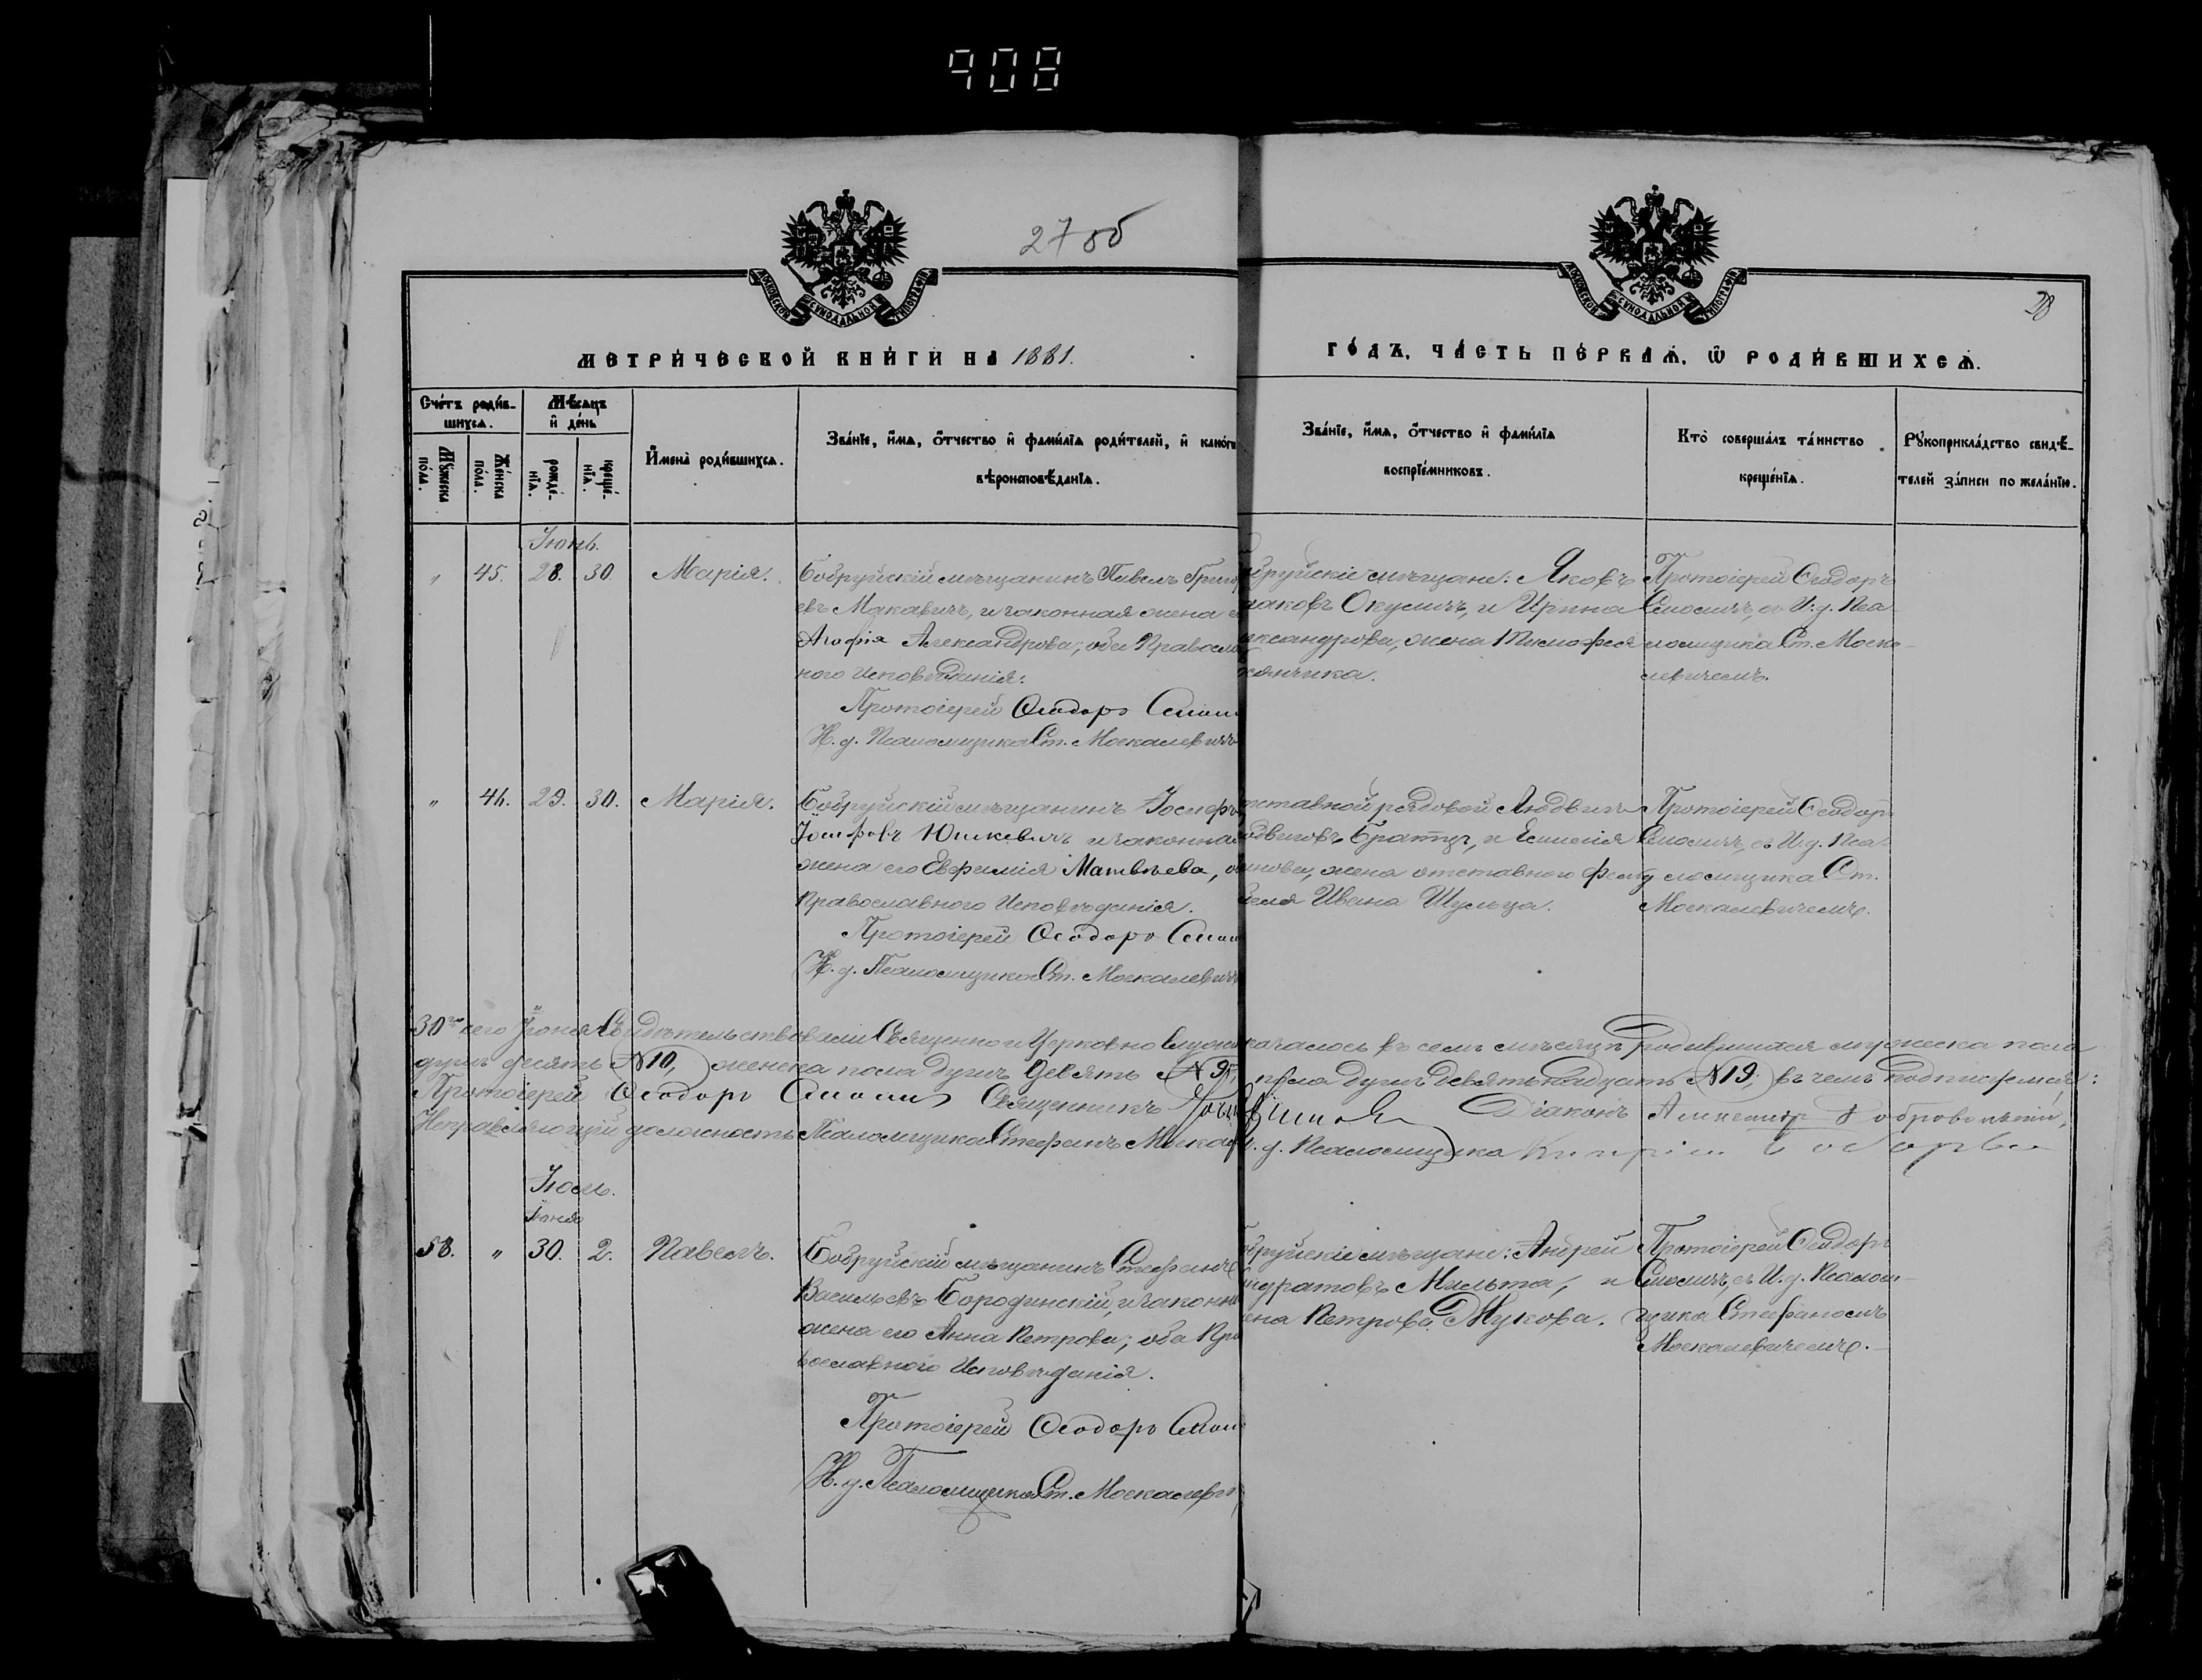 908
27 об
28
МЕТРИЧЕСКОЙ КНИГИ НА 1881.
ГОДЪ, ЧАСТЬ ПЕРВАЯ, Ѡ РОДИВШИХСЯ.
Счетъ родив-
шихся.
Мѣсяцъ
и день
Мужеска
пола.
Женска
пола.
рожде-
нія.
креще-
нія.
Имена родившихся.
Званіе, имя, отчество и фамилія родителей, и какого
вѣроисповѣданія.
Званіе, имя, отчество и фамилія
воспріемниковъ.
Кто совершалъ таинство
крещенія.
Рукоприкладство свидѣ-
телей записи по желанію.
Іюнь.
" 45. 28. 30. Марія.
Бобруйскій мѣщанинъ Павелъ Григор
евъ Макавичъ, и законная жена
Агафія Александрова, оба Правосла
ного Исповѣданія:
Протоіерей Ѳеодоръ
И. д. Псаломщика Ст. Москалевичъ
бруйскіе мѣщане: Яковъ
Исааковъ Окуличъ, и Ирина
лександрова, жена Тимофея
Протоіерей Ѳеодоръ
съ И. д. Пса-
ломщика Ст. Моска-
левичемъ.
" 46. 29. 30. Марія.
Бобруйскій мѣщанинъ Іосифъ
Іосифовъ Юшкевичъ и законная
жена его Евфимія Матвѣева, о
Православного Исповѣданія.
Протоіерей Ѳеодоръ
И. д. Псаломщика Ст. Москалевичъ
тставной рядовой Людвигъ
двиговъ и
жена отставного фельд
беля Ивана Шульца.
Протоіерей Ѳеодоръ
съ И. д. Пса-
ломщика Ст.
Москалевичемъ.
30го сего Іюня Свидѣтельствовали Священно и Церковно Служи значалось въ семъ мѣсяцѣ родившихся мужеска пола
душъ десять №10, женска пола душъ девять №9, пола душъ девятнадцать №19, въ чемъ подписуемся:
Протоіерей Ѳеодоръ Священникъ Діаконъ
Исправляющій должность Псаломщика Стефанъ Москал И. д. Псаломщика
Іюль.
Іюня
58. " 30. 2. Павелъ.
Бобруйскій мѣщанинъ Стефанъ
Васильевъ Бородинскій, и законна
жена его Анна Петрова; оба Пра
вославного Исповѣданія.
Протоіерей Ѳеодоръ
И. д. Псаломщика Ст. Москалевичъ
бруйскіе мѣщане: Андрей
и
Петрова Жукова.
Протоіерей Ѳеодоръ
съ И. д. Псалом-
щика Стефаномъ
Москалевичемъ.